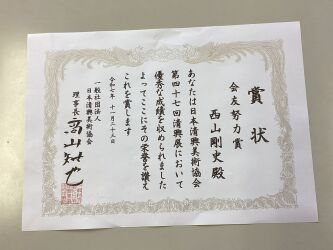 賞状
会友努力賞
西山剛史殿
あなたは日本清興美術協会
第四十七回清興展において
優秀な成績を収められました
よってここにその栄誉を讃え
これを賞します
令和七年十一月二十三日
一般社団法人
日本清興美術協会
理事長